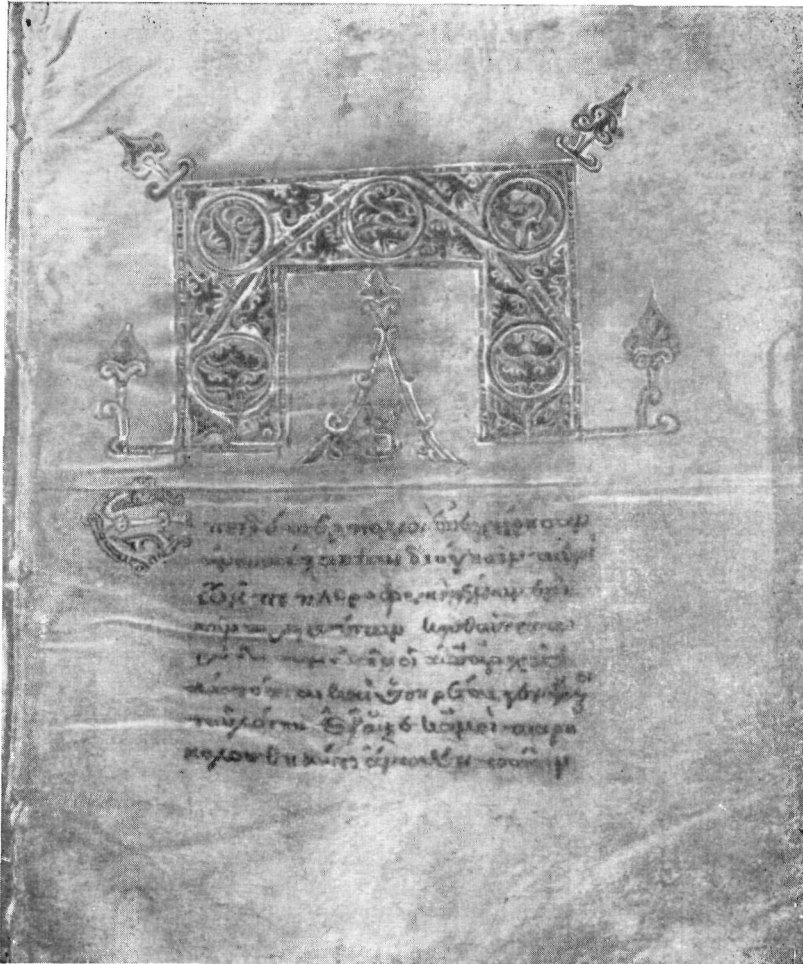 Ἐπειδήπερ πολλοὶ ἐπεχείρησαν
ἀνατάξασθαι διήγησιν περὶ
τῶν πεπληροφορημένων ἐν ἡ
μῖν πραγμάτων καθὼς παρέδο
ἡμῖν οἱ ἀπαρχῆς
αὐτόπται καὶ ὑπηρέται γενόμενοι
τοῦ λόγου ἔδοξε κἀμοὶ παρη
κολουθηκότι ἄνωθεν πᾶσιν